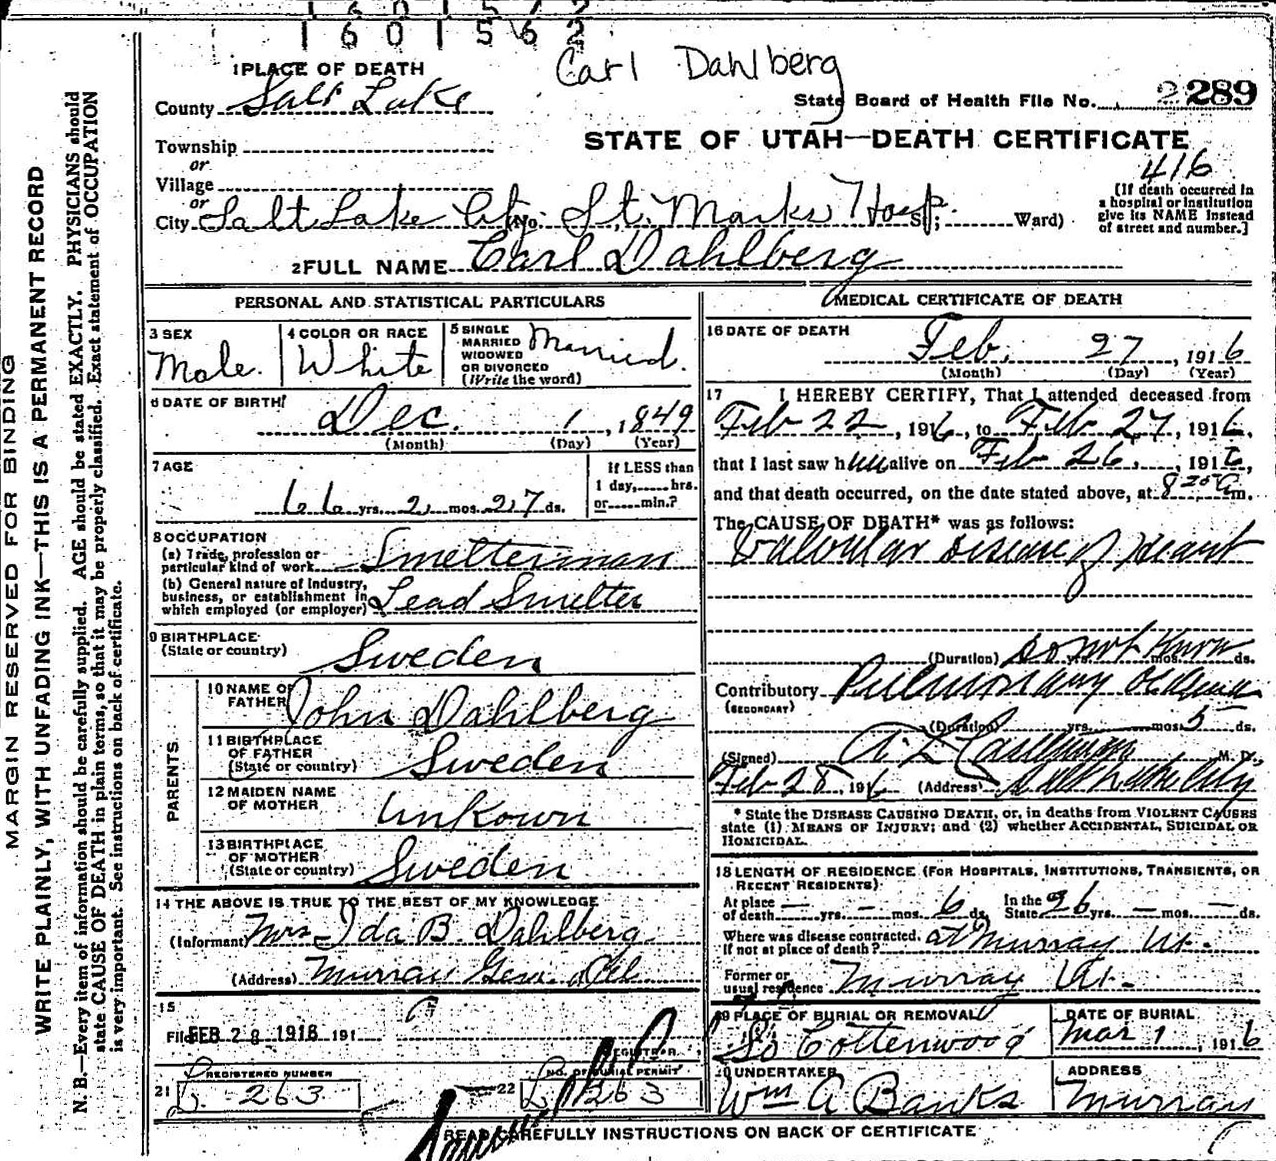 1601562
1601562
Carl Dahlberg
1 PLACE OF DEATH
County Salt Lake
State Board of Health File No. 2 289
STATE OF UTAH—DEATH CERTIFICATE
416
Township
or
Village
or
City Salt Lake City (No. St. Marks Hosp. St.; Ward)
[If death occurred in
a hospital or institution
give its NAME instead
of street and number.]
2 FULL NAME Carl Dahlberg
PERSONAL AND STATISTICAL PARTICULARS
3 SEX
Male.
4 COLOR OR RACE
White
5 SINGLE
MARRIED
WIDOWED
OR DIVORCED
(Write the word)
Married.
6 DATE OF BIRTH
Dec. 1, 1849
(Month) (Day) (Year)
7 AGE
66 yrs. 2 mos. 27 ds.
If LESS than
1 day, hrs.
or min.?
8 OCCUPATION
(a) Trade, profession or
particular kind of work Smelterman
(b) General nature of Industry,
business, or establishment in
which employed (or employer) Lead Smelter
9 BIRTHPLACE
(State or country)
Sweden
PARENTS
10 NAME OF
FATHER
John Dahlberg
11 BIRTHPLACE
OF FATHER
(State or country)
Sweden
12 MAIDEN NAME
OF MOTHER
Unkown
13 BIRTHPLACE
OF MOTHER
(State or country)
Sweden
14 THE ABOVE IS TRUE TO THE BEST OF MY KNOWLEDGE
(Informant) Mrs Ida B. Dahlberg
(Address) Murray Gen. Del
15
Filed FEB 28 1916 191
REGISTRAR
21 REGISTERED NUMBER
L. 263
22 NO. OF BURIAL PERMIT
L. 263
MEDICAL CERTIFICATE OF DEATH
16 DATE OF DEATH
Feb. 27, 1916
(Month) (Day) (Year)
17 I HEREBY CERTIFY, That I attended deceased from
Feb 22, 1916, to Feb 27, 1916,
that I last saw him alive on Feb 26, 1916,
and that death occurred, on the date stated above, at 8 20 a m.
The CAUSE OF DEATH* was as follows:
Valvular Disease of Heart
(Duration) Do not Know yrs. mos. ds.
Contributory Pulmonary Oedema
(SECONDARY)
(Duration) yrs. mos. 5 ds.
(Signed) A. L. M. D.
Feb 28, 1916 (Address) Salt Lake City
* State the DISEASE CAUSING DEATH, or, in deaths from VIOLENT CAUSES
state (1) MEANS OF INJURY; and (2) whether ACCIDENTAL, SUICIDAL OR
HOMICIDAL.
18 LENGTH OF RESIDENCE (FOR HOSPITALS, INSTITUTIONS, TRANSIENTS, OR
RECENT RESIDENTS)
At place
of death — yrs. - mos. 6 ds. In the State 26 yrs. — mos. — ds.
Where was disease contracted,
if not at place of death? at Murray Ut.
Former or
usual residence Murray Ut.
19 PLACE OF BURIAL OR REMOVAL
So Cottenwood
DATE OF BURIAL
Mar 1, 1916
20 UNDERTAKER
Wm A Banks
ADDRESS
Murray
READ CAREFULLY INSTRUCTIONS ON BACK OF CERTIFICATE
MARGIN RESERVED FOR BINDING
WRITE PLAINLY, WITH UNFADING INK—THIS IS A PERMANENT RECORD
N. B.—Every item of information should be carefully supplied. AGE should be stated EXACTLY. PHYSICIANS should
state CAUSE OF DEATH in plain terms, so that it may be properly classified. Exact statement of OCCUPATION
is very important. See instructions on back of certificate.